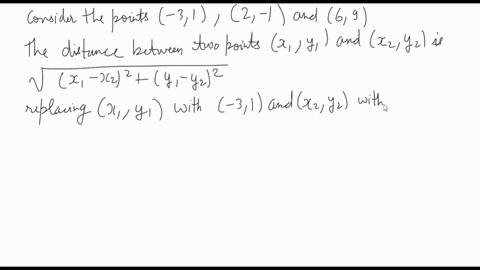 Consider the points (-3,1), (2,-1) and (6,9)
The distance between two points (x₁,y₁) and (x₂,y₂) is
√((x₁-x₂)²+(y₁-y₂)²)
replacing (x₁,y₁) with (-3,1) and (x₂,y₂) with